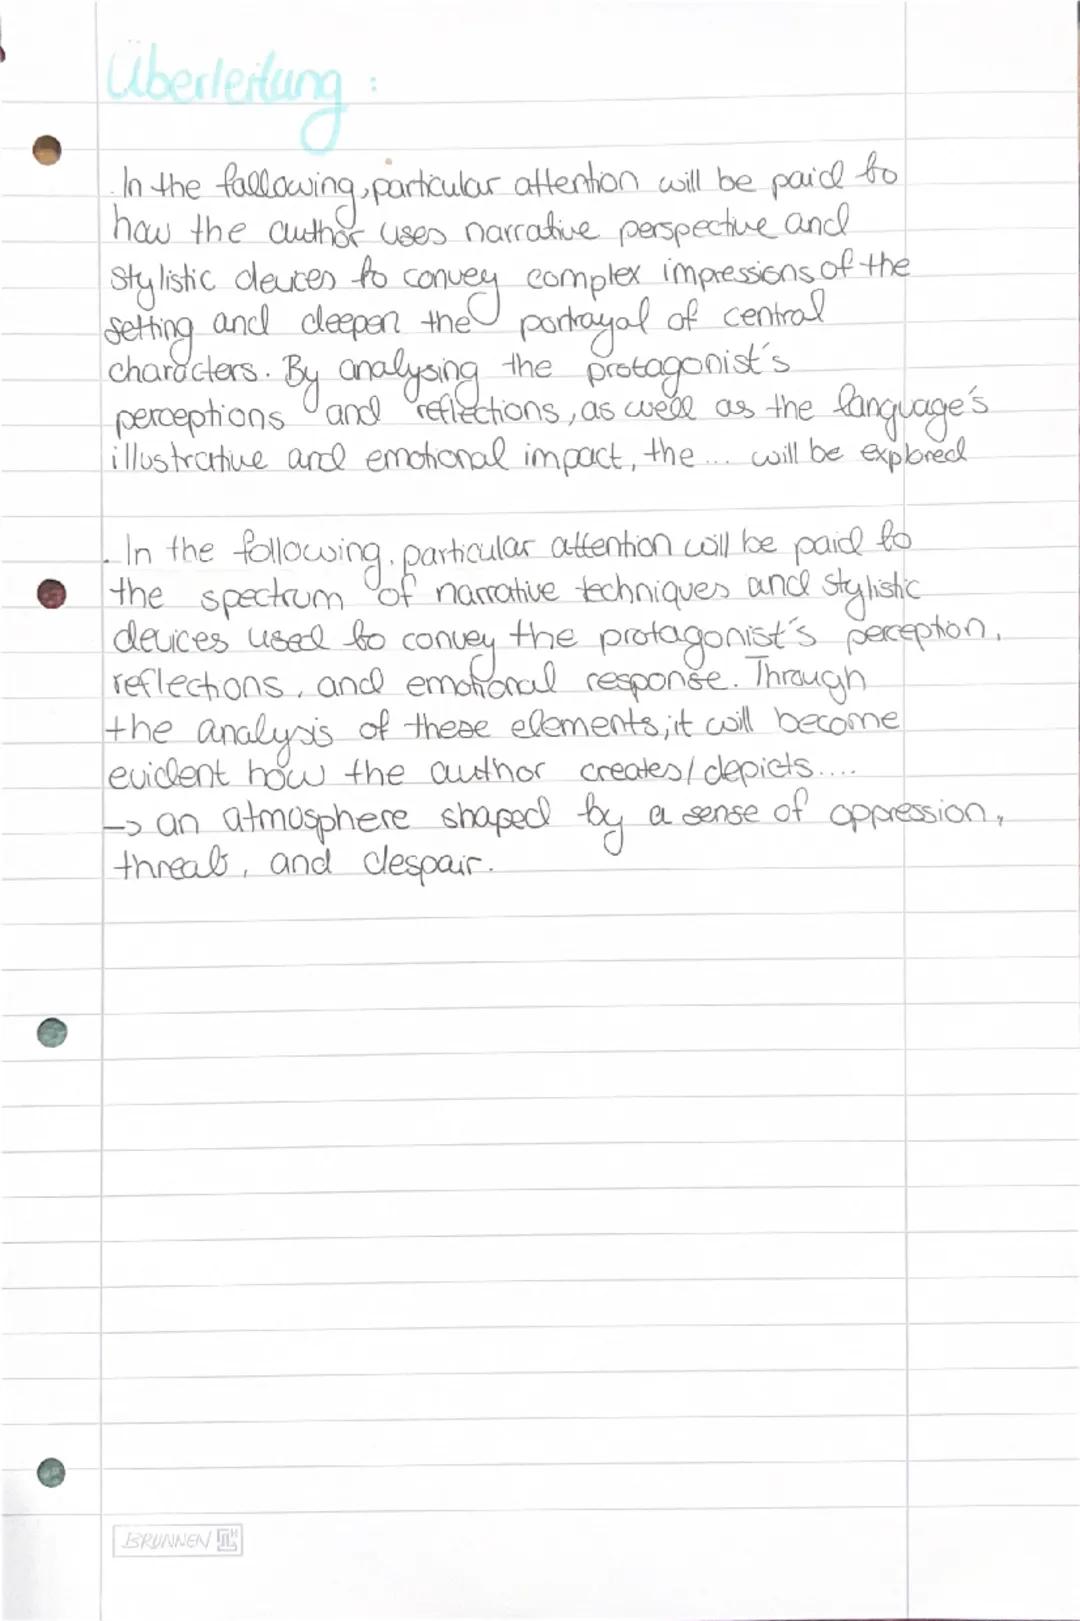 Überleitung:
. In the following, particular attention will be paid to
how the author uses narrative perspective and
stylistic devices to convey complex impressions of the
setting and deepen the portrayal of central
characters. By analysing the protagonist's
perceptions and reflections, as well as the language's
illustrative and emotional impact, the ... will be explored
. In the following, particular attention will be paid to
the spectrum of narrative techniques and stylistic
devices used to convey the protagonist's perception,
reflections, and emotional response. Through
the analysis of these elements, it will become
evident how the author creates/depicts....
-> an atmosphere shaped by a sense of oppression,
threat, and despair.
BRUNNEN